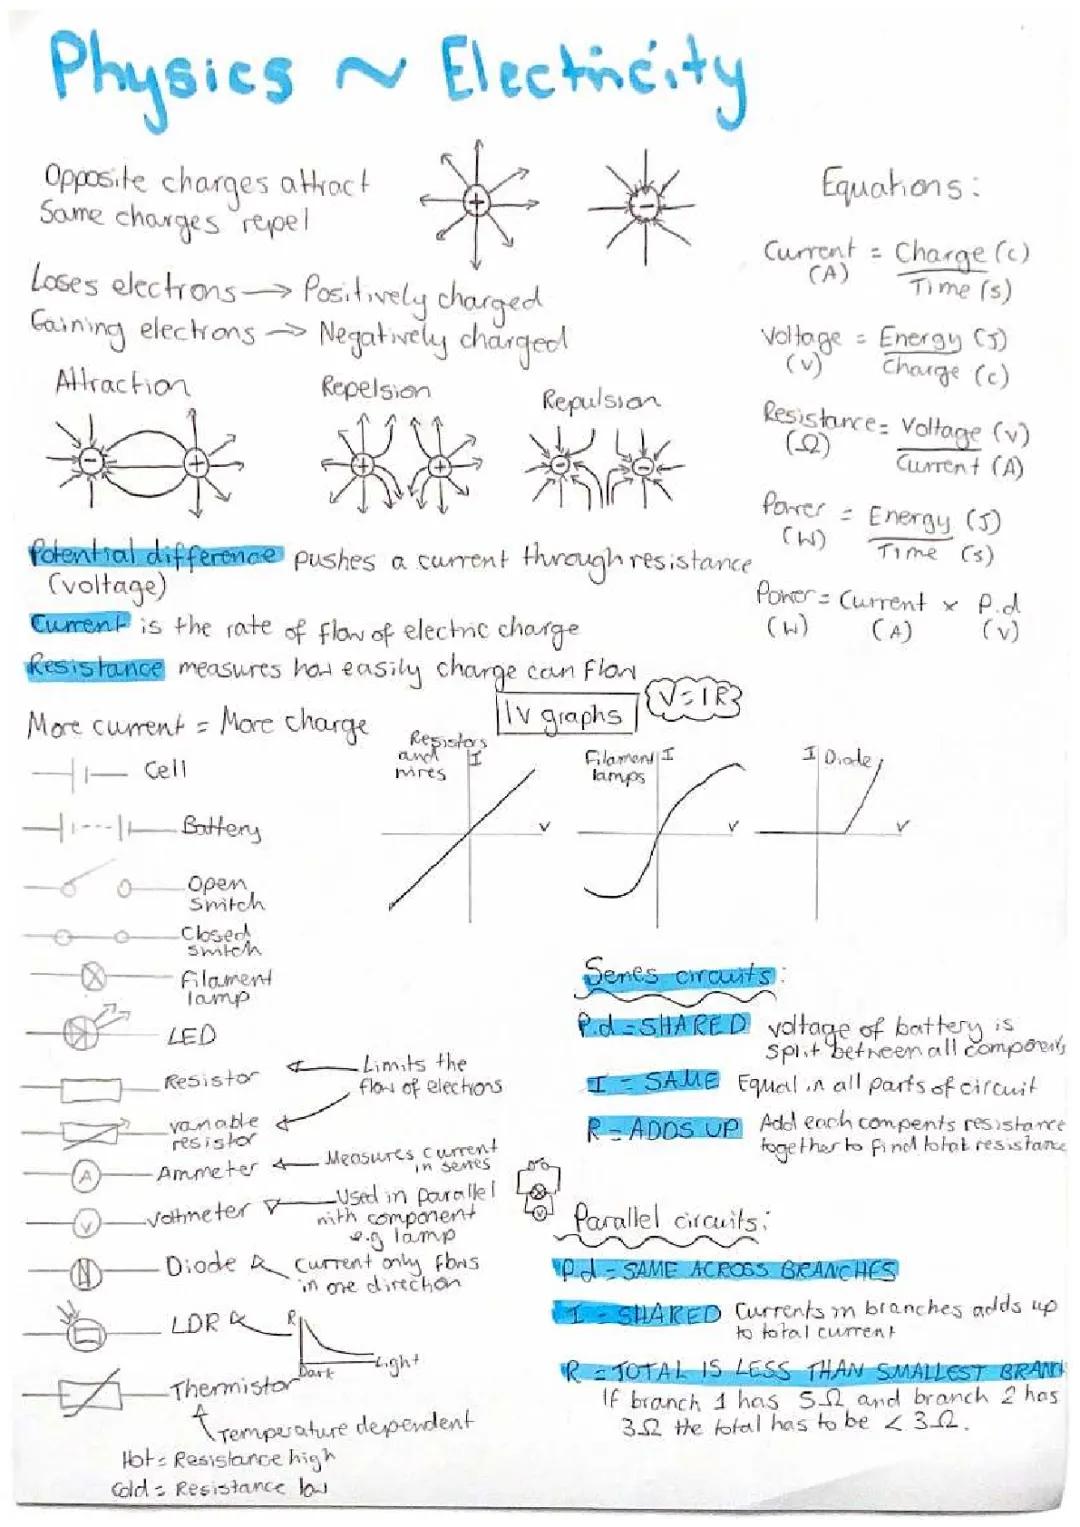 Physics ~ Electricity
Opposite charges attract
Same charges repel
+
-
Loses electrons → Positively charged
Gaining electrons → Negatively charged
Attraction
Repelsion
Repulsion
- +
+ +
- -
Equations:
Current = Charge (c)
(A) Time (s)
Voltage = Energy (J)
(v) Charge (c)
Resistance = Voltage (v)
(Ω) Current (A)
Power = Energy (J)
(W) Time (s)
Power = Current × P.d
(W) (A) (V)
Potential difference pushes a current through resistance
(voltage)
Current is the rate of flow of electric charge
Resistance measures how easily charge can flow
More current = More charge
IV graphs
V=IR
Resistors
and
wires
I
V
Filament
lamps
I
V
I Diode
V
Cell
Battery
Open
switch
Closed
switch
Filament
lamp
LED
Resistor
Limits the
flow of electrons
variable
resistor
A
Ammeter ← Measures current
in series
V
Voltmeter
Used in parallel
with component
e.g lamp
V
Diode
Current only flows
in one direction
LDR
R
Dark
Light
Thermistor
Temperature dependent
Hot = Resistance high
Cold = Resistance low
Series circuits:
P.d = SHARED voltage of battery is
split between all components
I = SAME Equal in all parts of circuit
R = ADDS UP Add each compents resistance
together to find total resistance
Parallel circuits:
P.d = SAME ACROSS BRANCHES
I = SHARED Currents in branches adds up
to total current
R = TOTAL IS LESS THAN SMALLEST BRANCH
If branch 1 has 5Ω and branch 2 has
3Ω the total has to be < 3Ω.